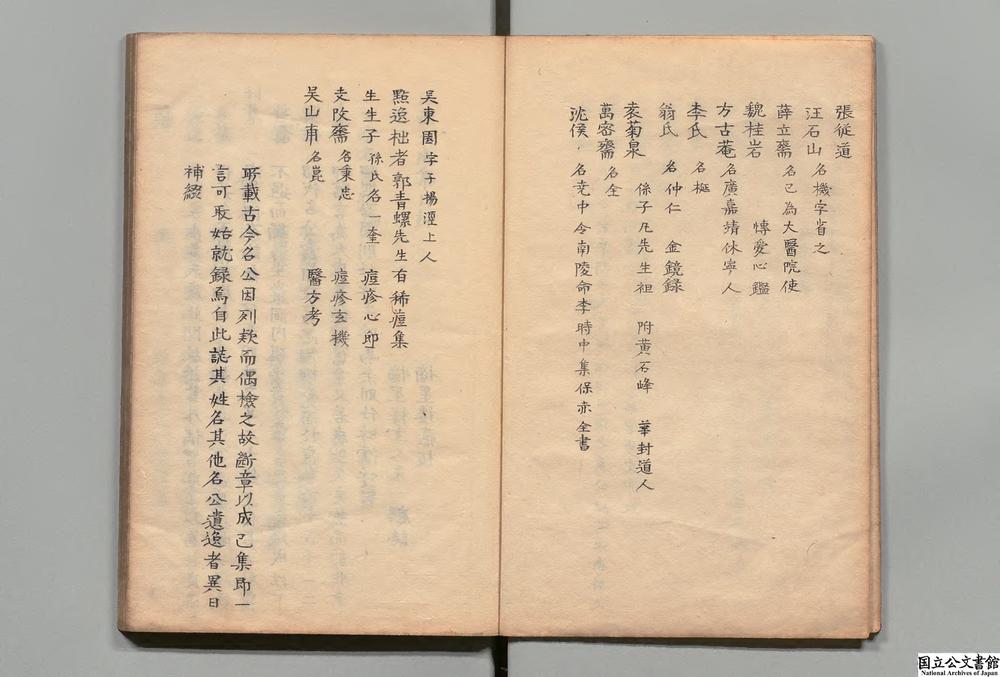 張從道
汪石山 名機字省之
薛立齋 名己為大醫院使
魏桂岩 博愛心鑑
方古菴 名廣嘉靖休寧人
李氏 名梴
翁氏 名仲仁 金鏡錄
袁菊泉 係了凡先生祖 附黃石峰 華封道人
萬密齋 名全
沈侯 名堯中令南陵命李時中集保赤全書
吳東園 字子揚涇上人
點逸樵者 郭青螺先生有稀痘集
生生子 孫氏名一奎 痘疹心印
支改齋 名秉忠 痘疹玄機
吳山甫 名崑 醫方考
所載古今名公因列款而偶檢之故斷章以成己集即一
言可取始就錄焉自此誌其姓名其他名公遺逸者異日
補綴
国立公文書館
National Archives of Japan